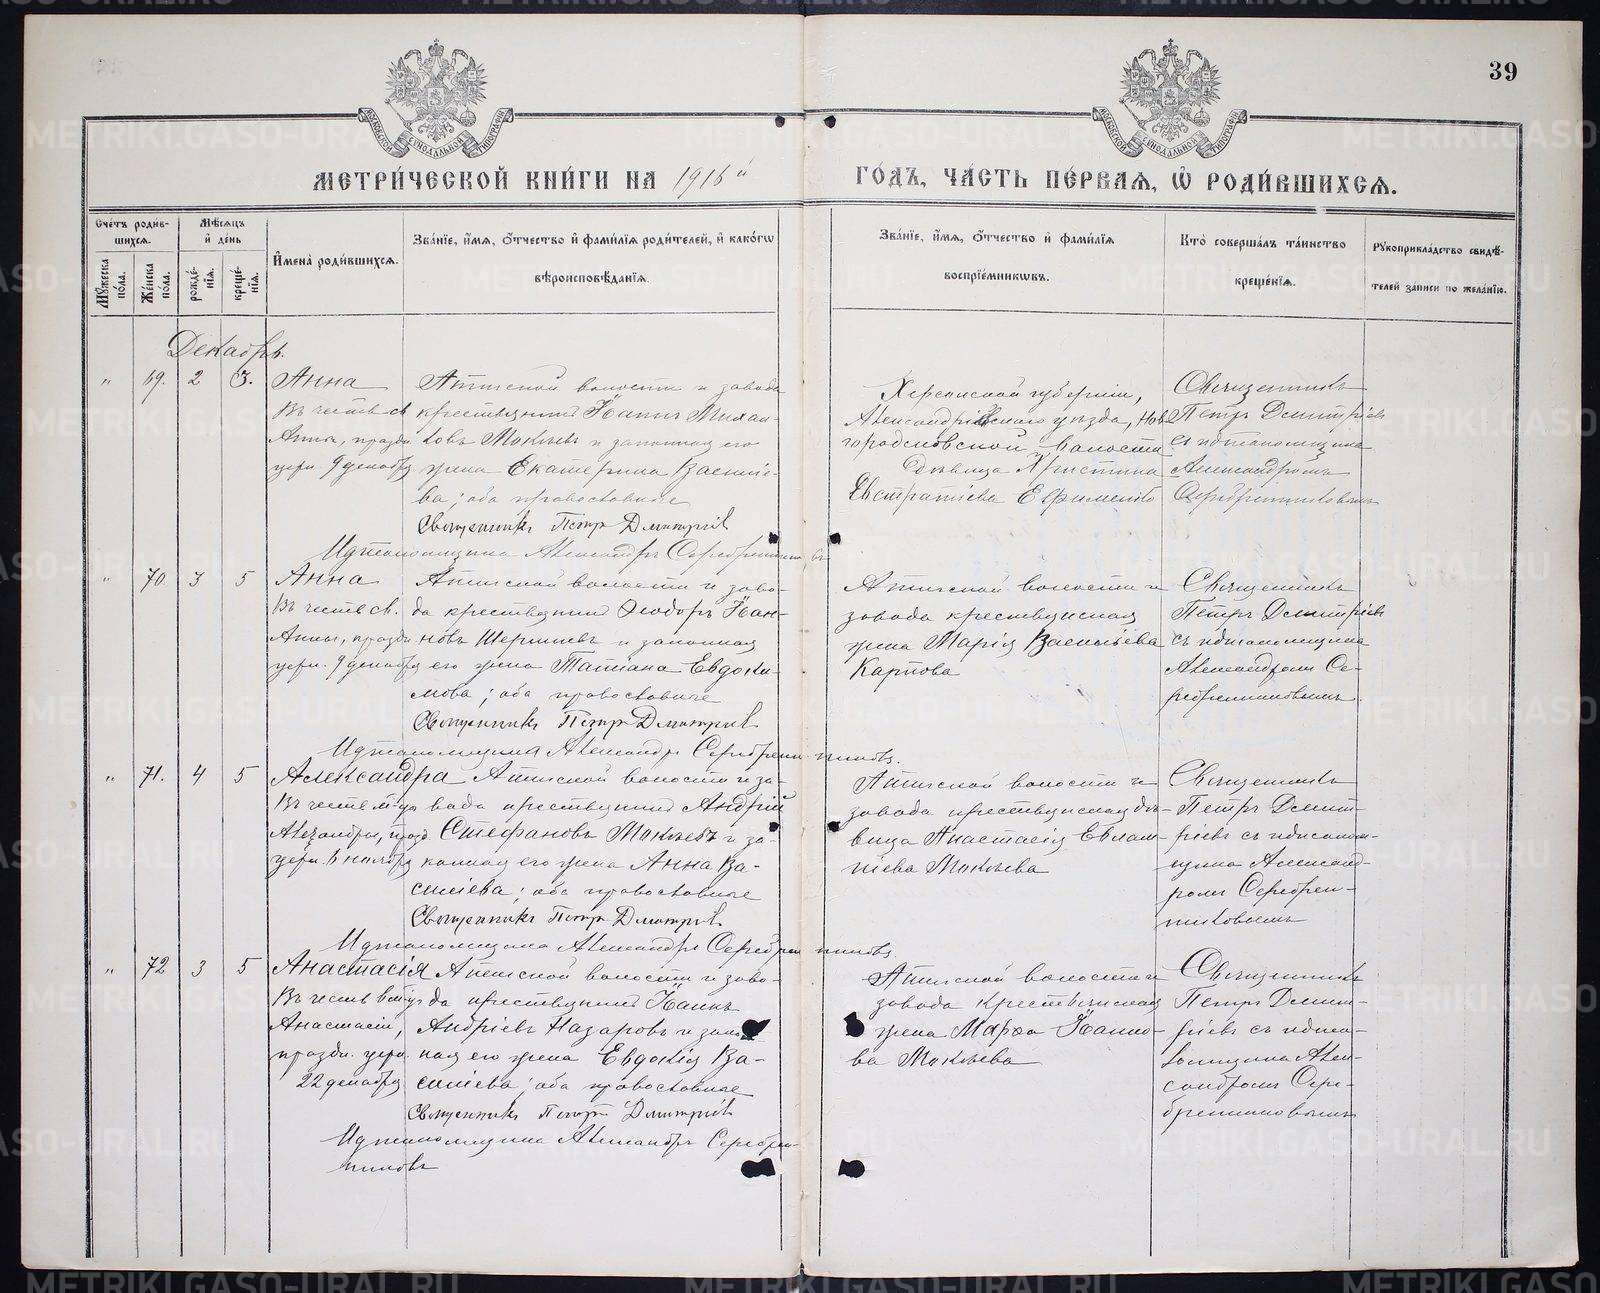 39
МЕТРИ́ЧЕСКОЙ КНИ́ГИ НА 1916 ГО́ДЪ, ЧА́СТЬ ПЕ́РВАЯ, Ѿ РОДИ́ВШИХСЯ.
Сче́тъ роди́вшихся.
Му́жеска по́ла.
Же́нска по́ла.
Мѣ́сяцъ и де́нь
рожде́нія.
креще́нія.
Имена̀ роди́вшихся.
Зва́ніе, и́мя, о́тчество и фами́лія роди́телей, и како́гѡ
вѣроисповѣ́данія.
Зва́ніе, и́мя, о́тчество и фами́лія
воспріе́мникѡвъ.
Кто̀ соверша́лъ та́инство
креще́нія.
Рукоприкла́дство свидѣ́-
телей за́писи по жела́нію.
Декабрь.
69. 2 3.
Анна
Въ честь св.
Анны, праздн.
церк. 9 декабря
волости и завода
крестьянинъ Іоаннъ Михаи-
ловъ Мокѣевъ и законная его
жена Екатерина Василіе-
ва; оба православные
Священникъ Петръ Димитріевъ
И.д. псаломщика Александръ Серебренниковъ
Херсонской губерніи,
Александрійскаго уѣзда, Нов-
городковской волости
дѣвица Христина
Евстратіева Ефименко
Священникъ
Петръ Димитріевъ
съ и.д. псаломщика
Александромъ
Серебренниковымъ
70 3 5
Анна
Въ честь св.
Анны, праздн.
церк. 9 декабря
волости и заво-
да крестьянинъ Ѳеодоръ Іоан-
новъ и законная
его жена Татіана Евдоки-
мова; оба православные
Священникъ Петръ Димитріевъ
И.д. псаломщика Александръ Серебренниковъ.
волости и
завода крестьянская
жена Марія Васильева
Карпова
Священникъ
Петръ Димитріевъ
съ и.д. псаломщика
Александромъ Се-
ребренниковымъ
71. 4 5
Александра
Въ честь м-цы
Александры, празд.
церк. 6 ноября
волости и за-
вода крестьянинъ Андрій
Стефановъ Мокѣевъ и за-
конная его жена Анна Ва-
силіева; оба православные
Священникъ Петръ Димитріевъ
И.д. псаломщика Александръ Серебренниковъ
волости и
завода крестьянская дѣ-
вица Анастасія Евлам-
піева Мокѣева
Священникъ
Петръ Димит-
ріевъ съ и.д. псалом-
щика Александ-
ромъ Серебрен-
никовымъ
72 3 5
Анастасія
Анастасіи,
праздн. церк.
22 декабря
волости и заво-
да крестьянинъ Іоаннъ
Андріевъ Назаровъ и закон-
ная его жена Евдокія Ва-
силіева; оба православные
Священникъ Петръ Димитріевъ
И.д. псаломщика Александръ Серебрен-
никовъ
волости и
завода крестьянская
жена Марѳа Іоанно-
ва Мокѣева
Священникъ
Петръ Димит-
ріевъ съ и.д. псa-
ломщика Алек-
сандромъ Сере-
бренниковымъ
METRIKI.GASO-URAL.RU